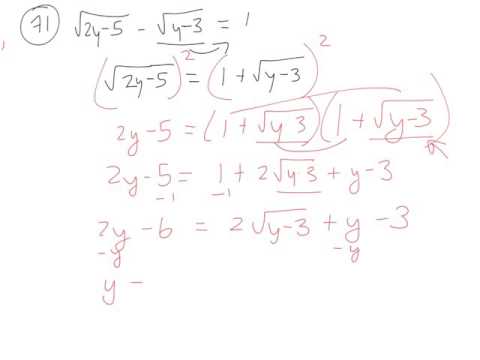 71) √2y-5 - √y-3 = 1
(√2y-5)² = (1 + √y-3)²
2y-5 = (1 + √y 3)(1 + √y-3)
2y-5 = 1 + 2√y 3 + y-3
-1 -1
2y - 6 = 2√y-3 + y - 3
-y -y
y -